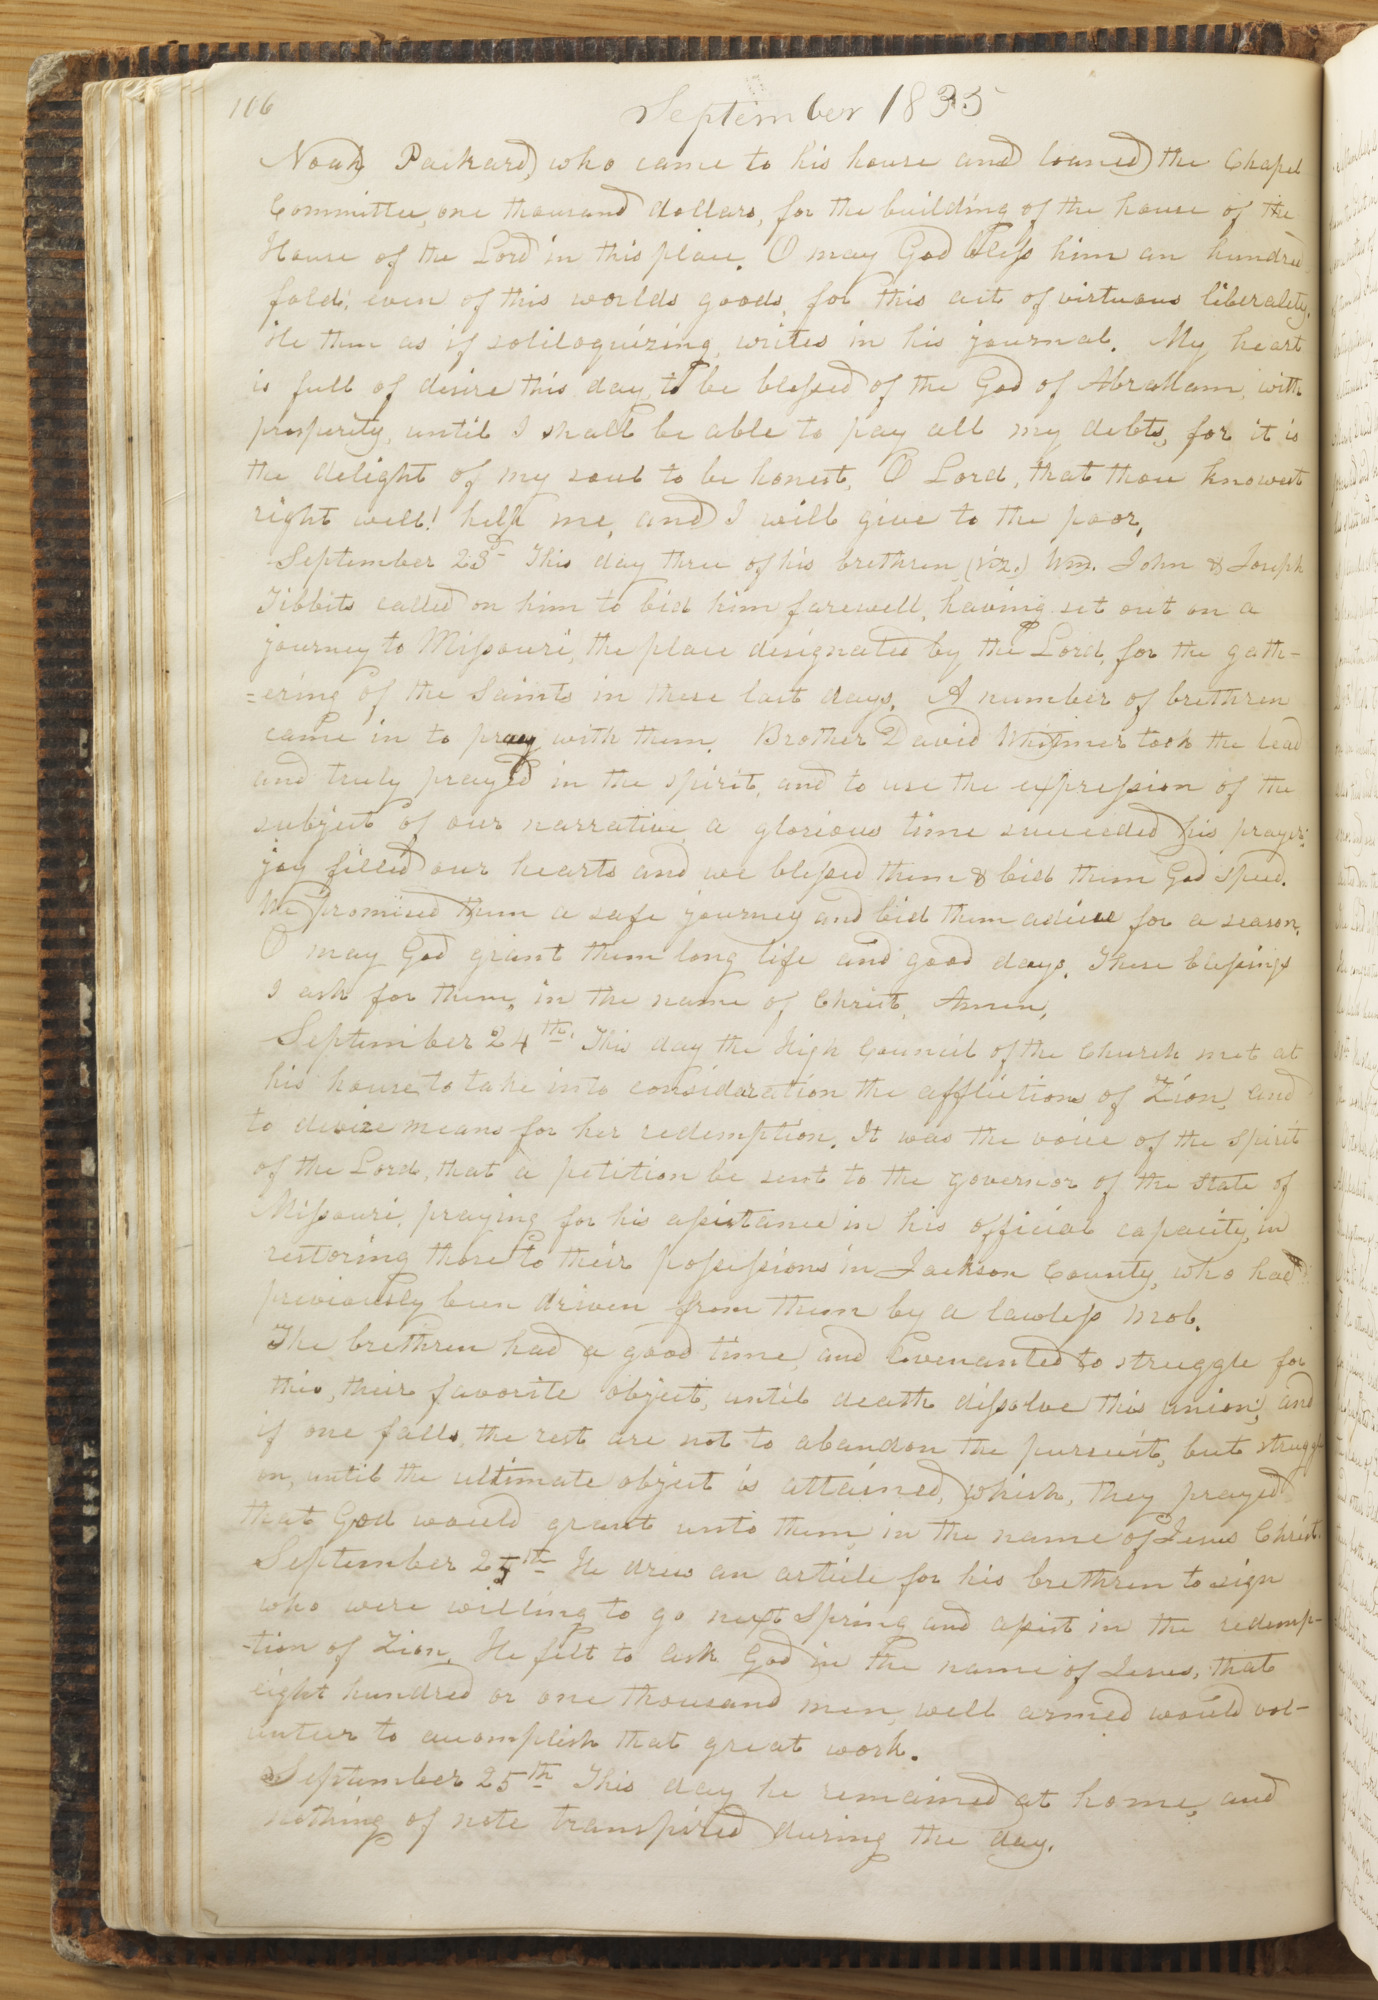 106
September 1835
Noah Packard, who came to his house and loaned the Chapel
Committee, one thousand dollars, for the building of the house of the
House of the Lord in this place. O may God bless him an hundred
fold; even of this worlds goods, for this act of virtuous liberality.
He then as if soliloquizing, writes in his journal. My heart
is full of desire this day, to be blessed of the God of Abraham, with
prosperity, until I shall be able to pay all my debts, for it is
the delight of my soul to be honest, O Lord, that thou knowest
right well! help me, and I will give to the poor,
September 23d This day three of his brethren, (viz.) Wm. John & Joseph
Tibbits called on him to bid him farewell, having set out on a
journey to Missouri, the place designated by the Lord, for the gath-
=ering of the Saints in these last days. A number of brethren
came in to pray with them. Brother David Whitmer took the lead
and truly prayed in the spirit, and to use the expression of the
subject of our narrative, a glorious time succeeded his prayer;
joy filled our hearts and we blessed them & bid them God speed.
We promised them a safe journey and bid them adieu for a season.
O may God grant them long life and good days. These blessings
I ask for them, in the name of Christ, Amen,
September 24th. This day the High Council of the Church met at
his house to take into considaration the afflictions of Zion, and
to devize means for her redemption. It was the voice of the spirit
of the Lord, that a petition be sent to the governor of the State of
Missouri, praying for his assistance in his official capacity, in
restoring those to their possessions in Jackson County, who had
previously been driven from them by a lawless mob.
The brethren had a good time, and Covenanted to struggle for
this, their favorite object, until death dissolve this union; and
if one falls, the rest are not to abandon the pursuit, but struggle
on, until the ultimate object is attained, which, they prayed
that God would grant unto them, in the name of Jesus Christ.
September 25th He drew an article for his brethren to sign
who were willing to go next Spring and assist in the redemp-
-tion of Zion. He felt to ask God in the name of Jesus, that
eight hundred or one thousand men, well armed would vol-
unteer to accomplish that great work.
September 25th This day he remained at home, and
nothing of note transpired during the day.